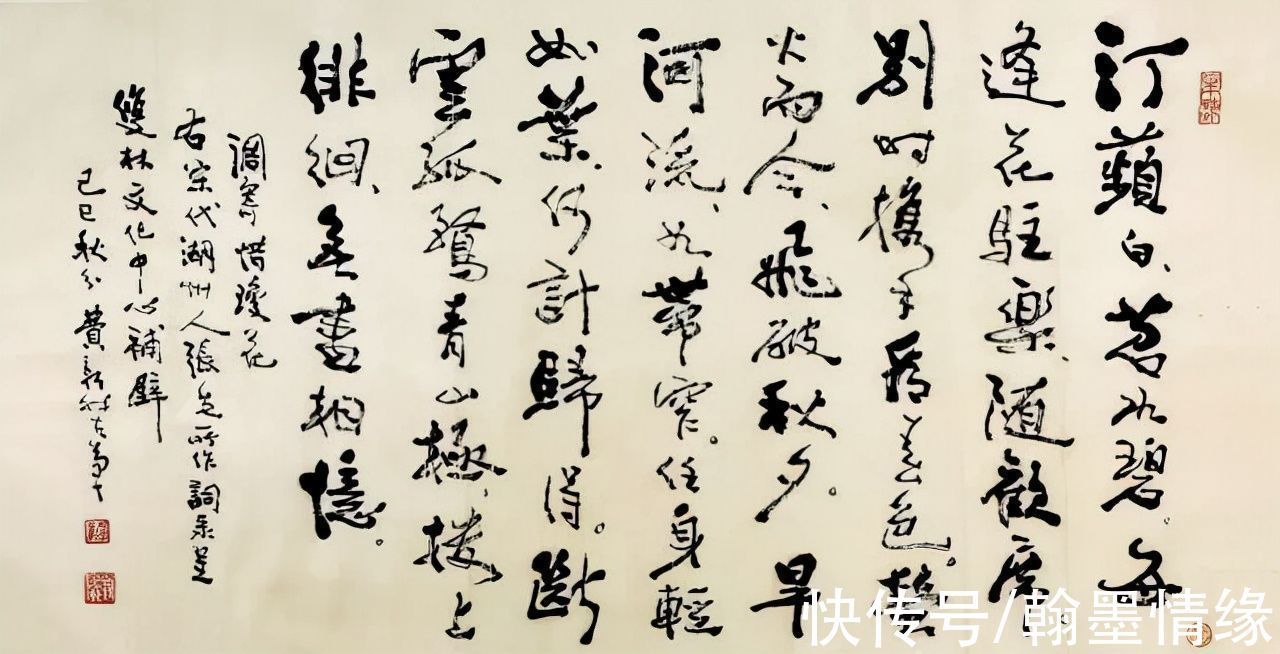 汀蘋白、苕水碧。每
逢花駐樂、隨歡席。
别时携手看春色。螢
火而今、飛破秋夕。旱
河流、如帶窄。任身輕
如葉、何計歸得。斷
雲孤鶩青山極、樓上
徘徊、無盡相憶。
調寄惜瓊花
右宋代湖州人張先所作詞录呈
雙林文化中心補壁
己巳秋分 費新我左筆
快传号/翰墨情缘